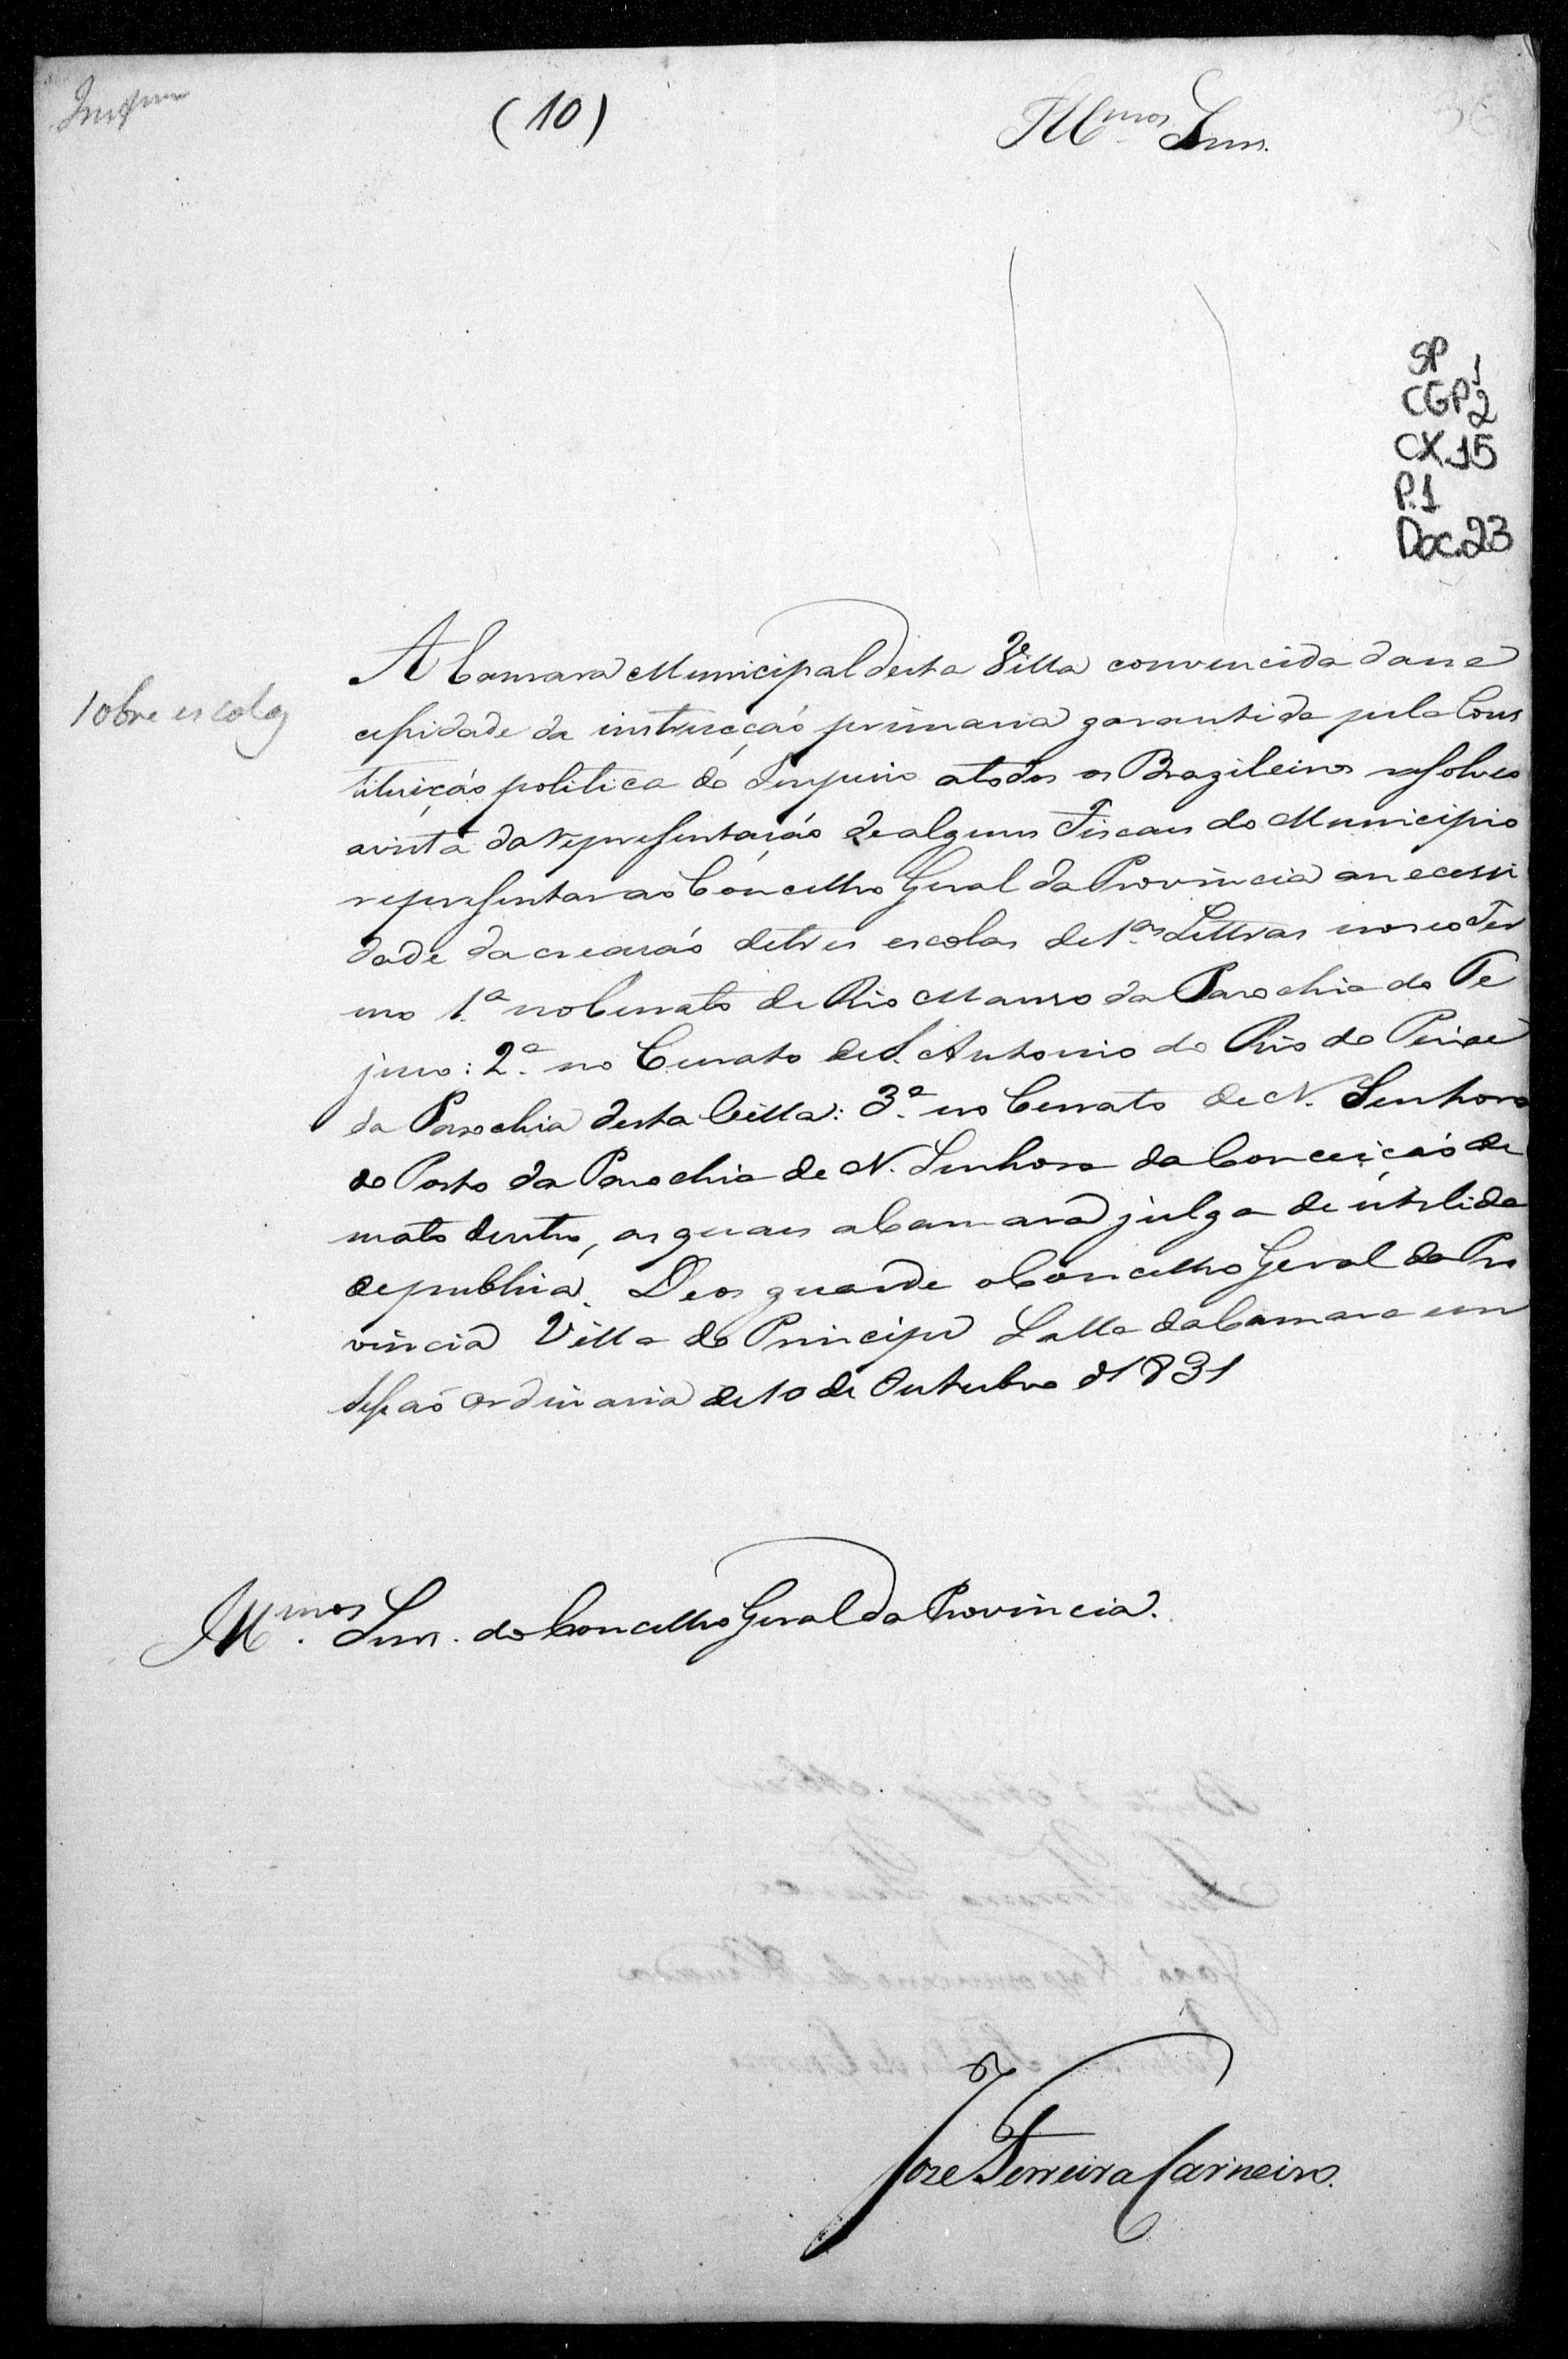 (10)
Illmos Snrs.
SP 1
CGP 2
CX.15
P.1
Doc.23
Sobre escolas
A Camara Municipal desta Villa convencida da ne
cessidade da instrucçaõ primaria garantida pela Cons
tituiçaõ politica do Imperio a todos os Brazileiros resolveo
a vista da representaçaõ de alguns Fiscaes do Municipio
representar ao Concelho Geral da Provincia a necessi
dade da creaçaõ de tres escolas de 1.as Lettras no seo Ter
mo 1.a no Curato de Rio Manso da Parochia do Te
juco: 2.a no Curato de S. Antonio do Rio do Peixe
da Parochia desta Villa: 3.a no Curato de N. Senhora
do Porto da Parochia de N. Senhora da Conceiçaõ de
mato dentro, as quaes a Camara julga de utilida
de publica. Deos guarde o Concelho Geral da Pro
vincia Villa do Principe Salla da Camara em
Sessaõ Ordinaria de 10 de Outubro d1831
Illmos Snrs. do Concelho Geral da Provincia.
Joze Ferreira Carneiro.